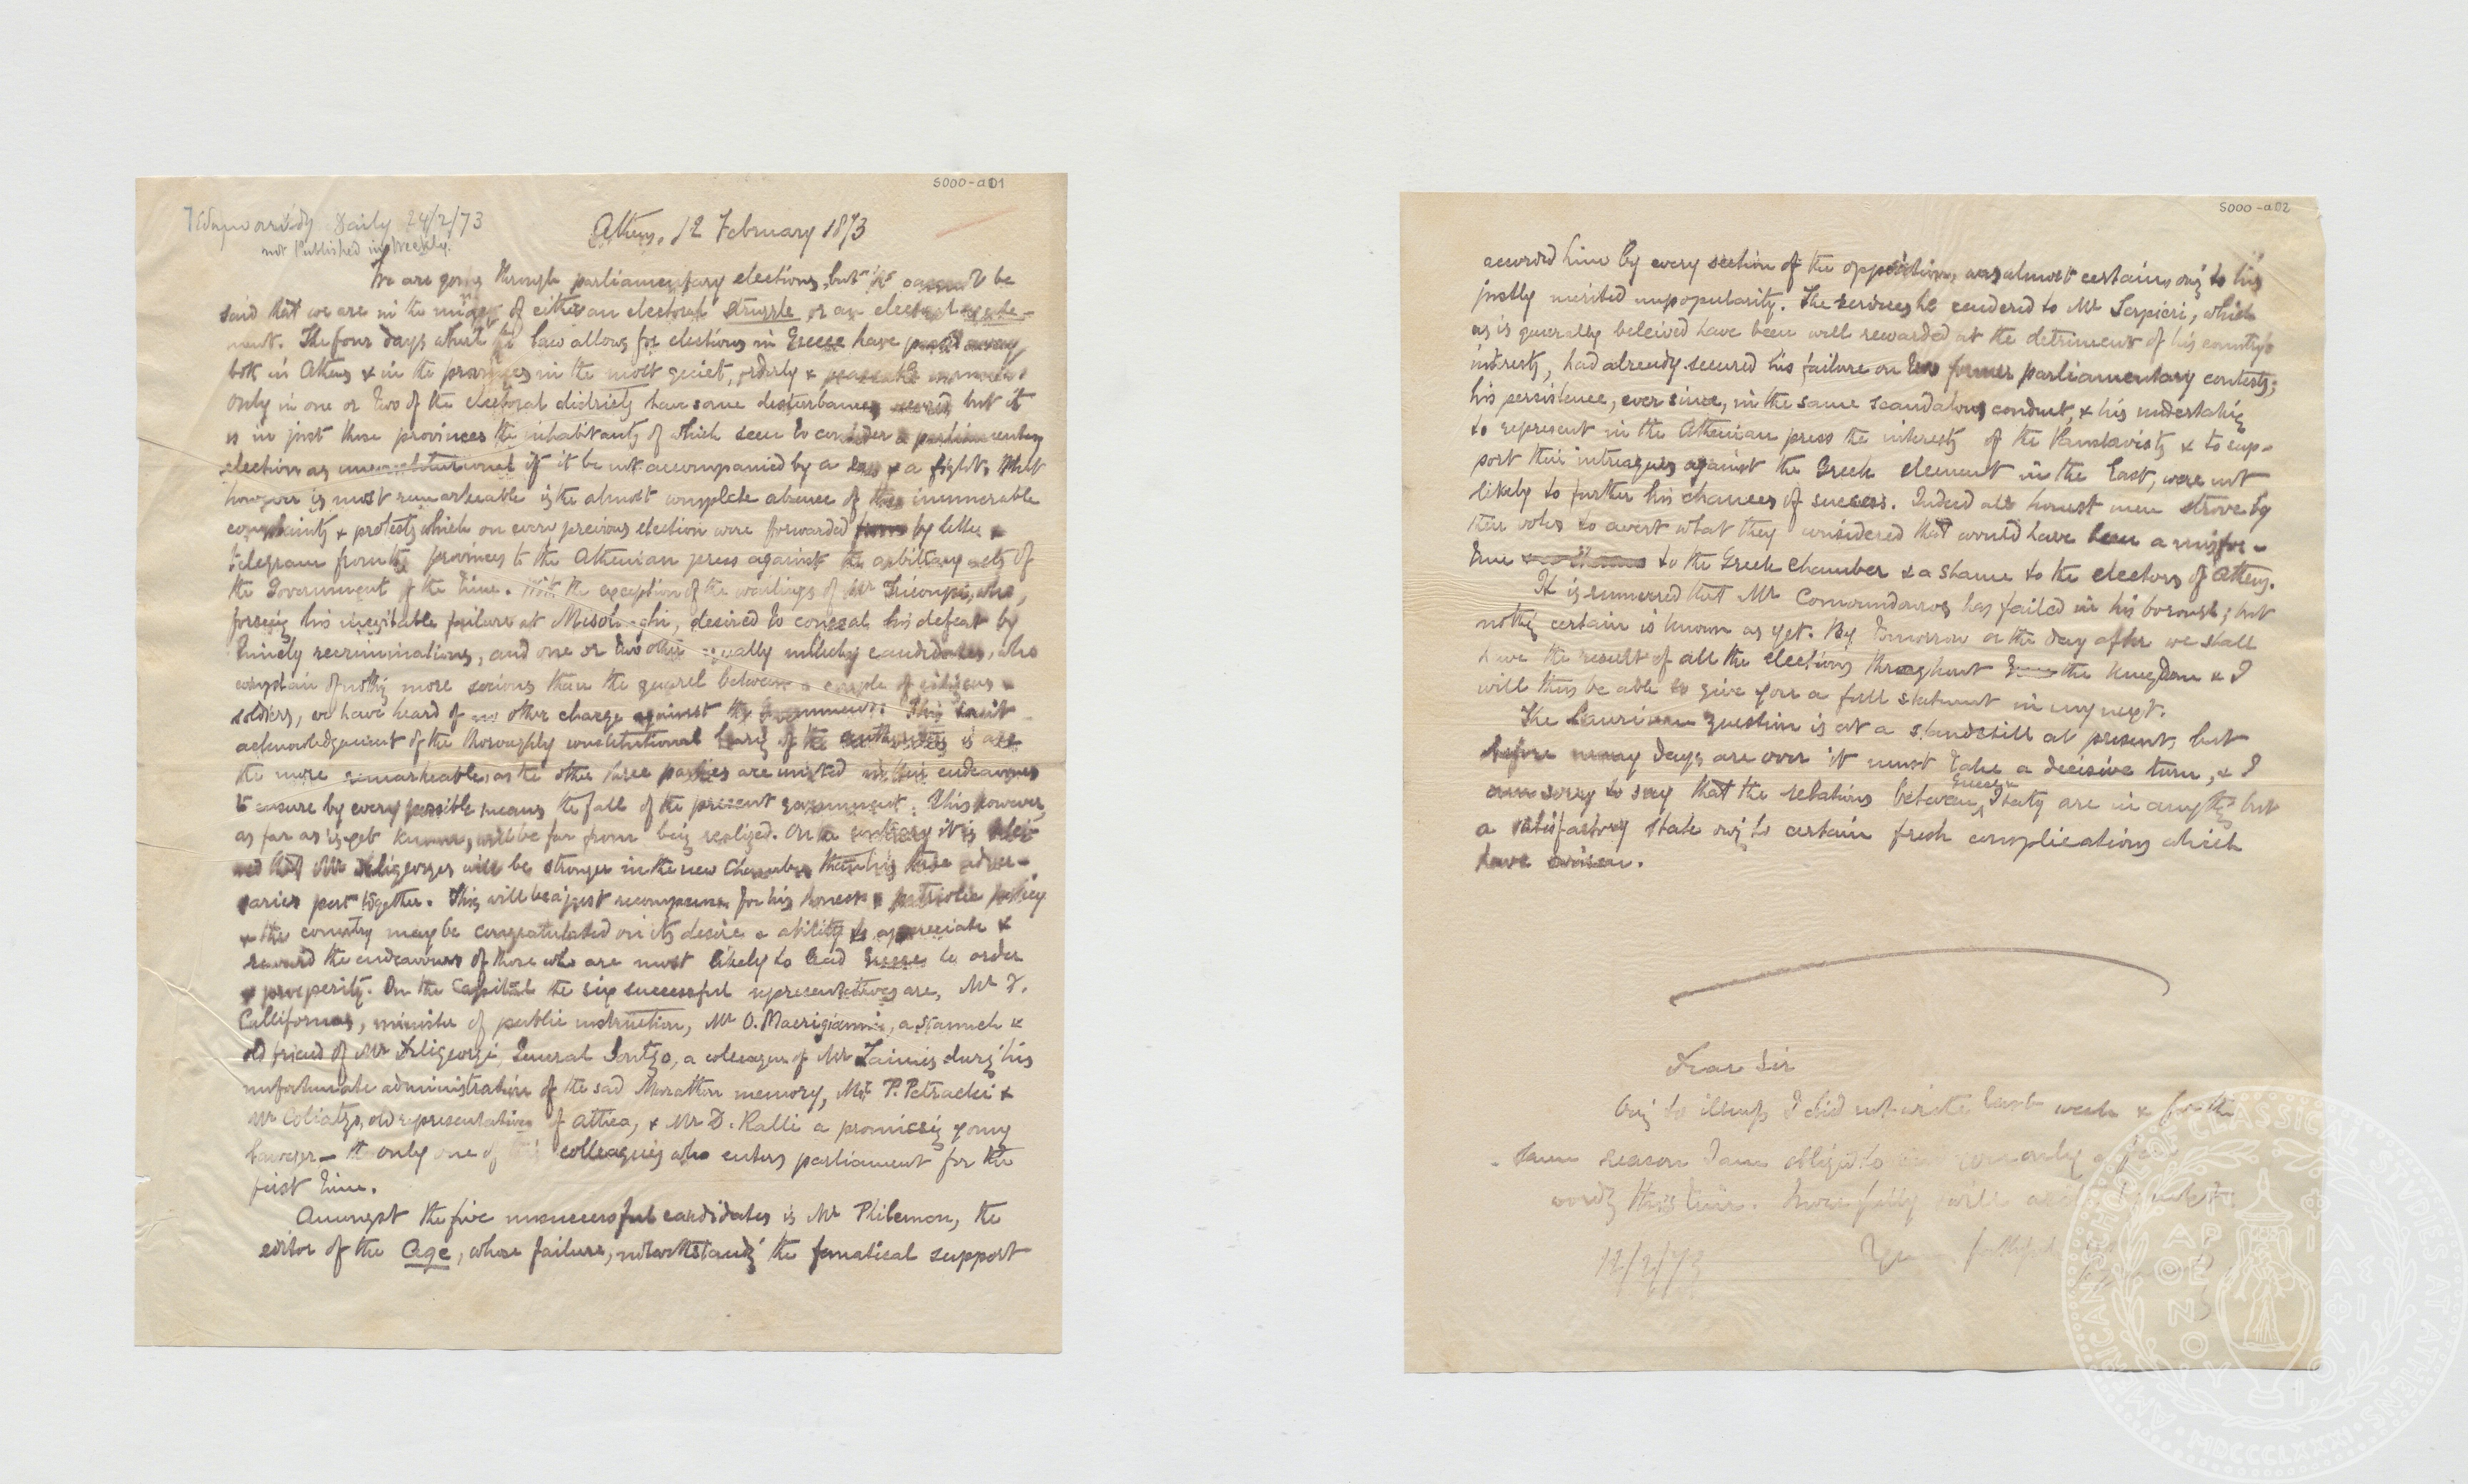 S000-a01
Daily 24/2/73
not Published in Weekly.
Athens, 12 February 1873
We are going through parliamentary elections, but it cannot be
said that we are in the midst of either an electoral struggle or an electoral
ment. The four days which the law allows for elections in Greece have passed away
both in Athens & in the provinces in the most quiet, orderly & peaceable manner.
Only in one or two of the electoral districts have some disturbances occurred but it
is in just those provinces the inhabitants of which seem to consider a parliamentary
election as unconstitutional if it be not accompanied by a row & a fight. What
however is most remarkeable is the almost complete absence of the innumerable
complaints & protests which on every previous election were forwarded from by letter &
telegram from the provinces to the Athenian press against the arbitrary acts of
the Government of the time. With the exception of the wailings of Mr Tricoupi, who,
forseing his inevitable failure at Misolonghi, desired to conceal his defeat by
timely recriminations, and one or two other equally unlucky candidates, who
complain of nothing more serious than the quarrel between a couple of citizens &
soldiers, we have heard of no other charge against the Government. This tacit
acknowledgement of the thoroughly constitutional bearing of the authorities is all
the more remarkeable as the other three parties are united in their endeavours
to ensure by every possible means the fall of the present government. This however,
as far as is yet known, will be far from being realized. On the contrary it is belei-
ved that Mr Deligeorges will be stronger in the new Chamber than his three adver-
saries put together. This will be a just recompense for his honest & patriotic policy
& the country may be congratulated on its desire & ability to appreciate &
reward the endeavours of those who are most likely to lead Greece to order
& prosperity. In the Capital the six successful representatives are, Mr F.
Callifornas, minister of public instruction, Mr O. Macrigianni, a staunch &
old friend of Mr Deligeorgi, General Soutzo, a colleague of Mr Zaimis during his
unfortunate administration of the sad Marathon memory, Mr P. Petrachi &
Mr Coliatzo, old representatives of Attica, & Mr D. Ralli a promising young
lawyer — the only one of his colleagues who enters parliament for the
first time.
Amongst the five unsuccessful candidates is Mr Philemon, the
editor of the Age, whose failure, notwithstanding the fanatical support
S000-a02
accorded him by every section of the opposition, was almost certain, owing to his
justly merited unpopularity. The services he rendered to Mr Serpieri, which
as is generally beleived have been well rewarded at the detriment of his country's
interests, had already secured his failure on two former parliamentary contests;
his persistence, ever since, in the same scandalous conduct, & his undertaking
to represent in the Athenian press the interests of the Panslavists & to sup-
port their intreagues against the Greek element in the East, were not
likely to further his chances of success. Indeed all honest men strove by
their votes to avert what they considered that would have been a misfor-
tune to the Greek Chamber & a shame to the electors of Athens.
It is rumoured that Mr Comoundouros has failed in his borough; but
nothing certain is known as yet. By tomorrow or the day after we shall
have the result of all the elections throughout the Kingdom & I
will thus be able to give you a full statement in my next.
The Laurium question is at a standstill at present, but
before many days are over it must take a decisive turn, & I
am sorry to say that the relations between Greece & Italy are in anything but
a satisfactory state owing to certain fresh complications which
have arisen.
Dear Sir
Owing to illness I did not write last week & for the
same reason I am obliged to you only a few
words this time. Hopefully will
12/2/73
Yours faithfully
AMERICAN SCHOOL OF CLASSICAL STUDIES AT ATHENS
MDCCCLXXXI
ΠΑΡΘΕΝΟΥ
ΦΙΛΑΣ ΦΙΛΟΙ